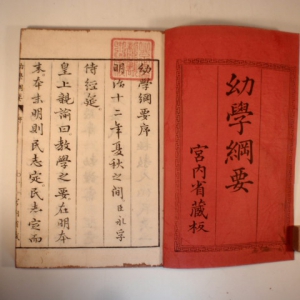 幼學綱要
宮内省藏板
幼學綱要序
明治十二年夏秋之間臣永孚
侍經筵
皇上親諭曰教學之要在明本
末本末明則民志定民志定而